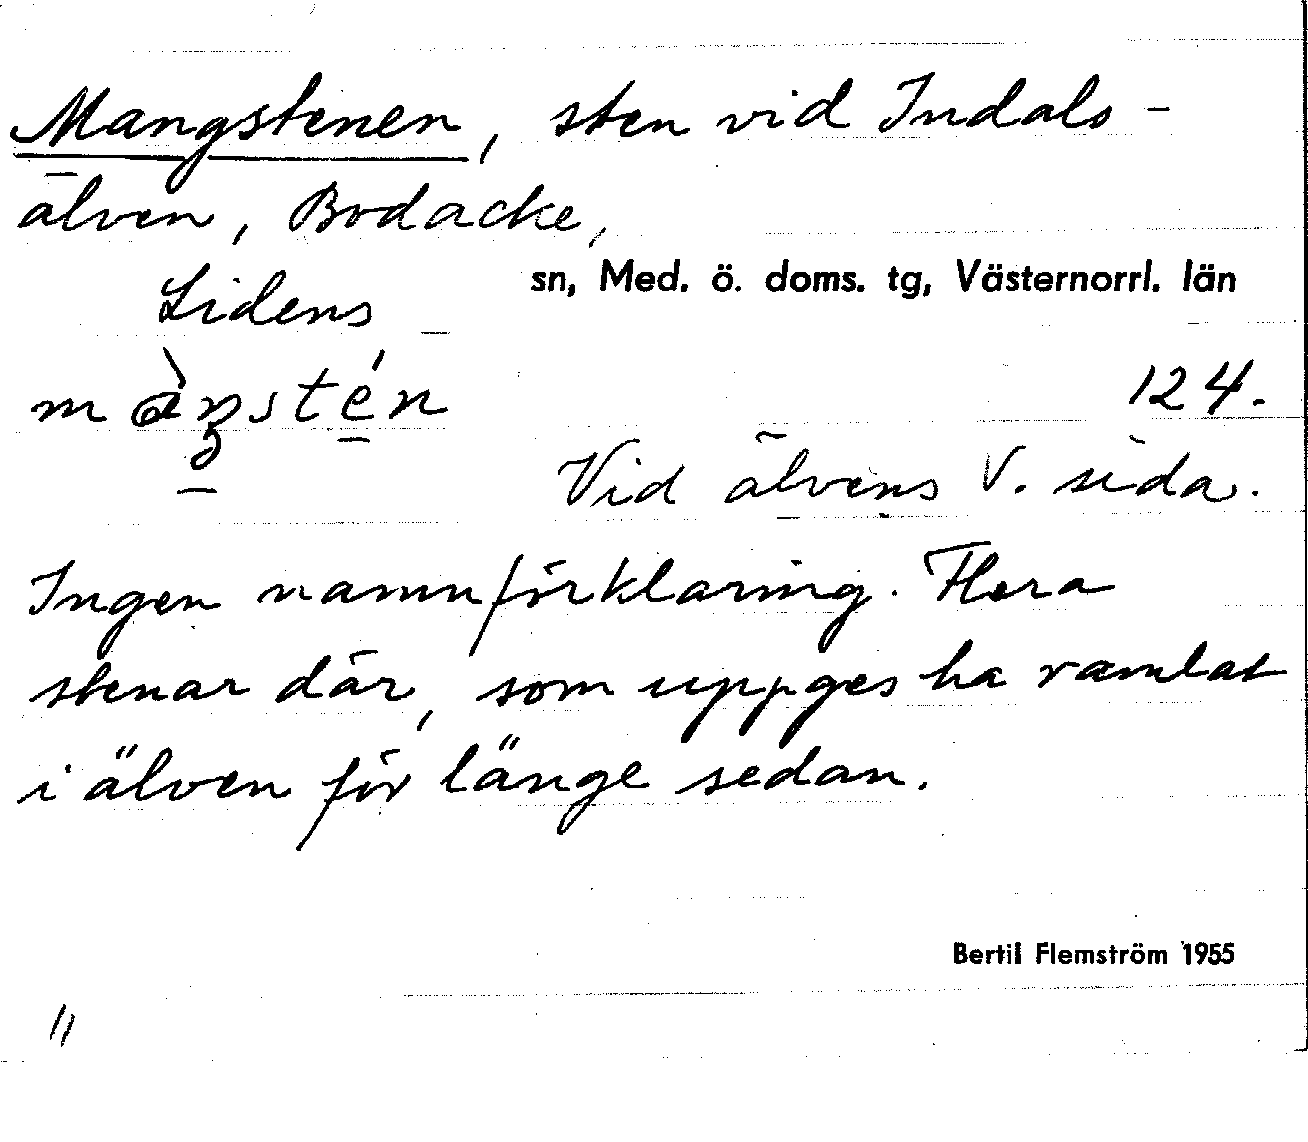 Mangstenen, sten vid Indals-
älven, Bodacke,
Lidens sn, Med. ö. doms. tg, Västernorrl. län
124.
Vid älvens V. sida.
Ingen namnförklaring. Flera
stenar där, som uppges ha ramlat
i älven för länge sedan.
Bertil Flemström 1955